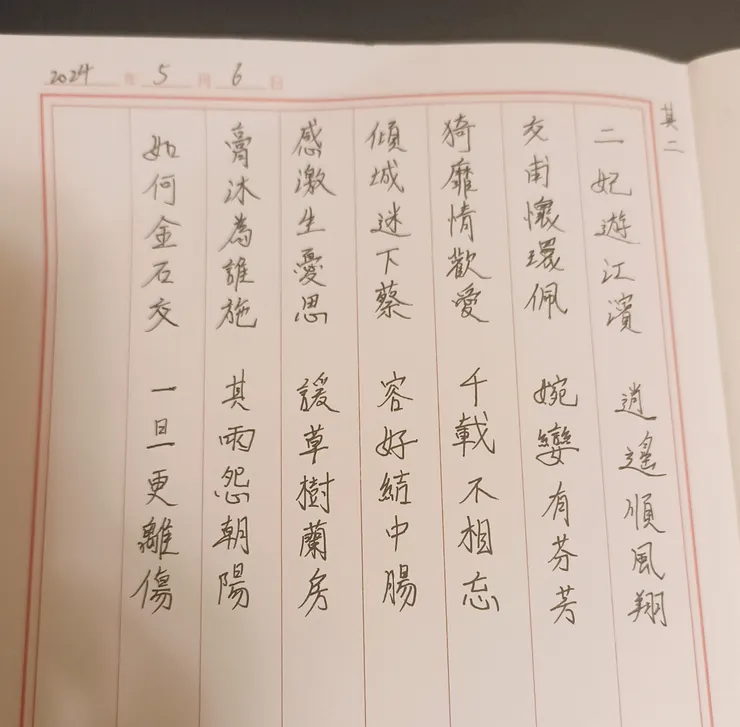 2024年5月6日
其二
二妃遊江濱 逍遙順風翔
交甫懷環佩 婉孌有芬芳
猗靡情歡愛 千載不相忘
傾城迷下蔡 容好結中腸
感激生憂思 諼草樹蘭房
膏沐為誰施 其雨怨朝陽
如何金石交 一旦更離傷